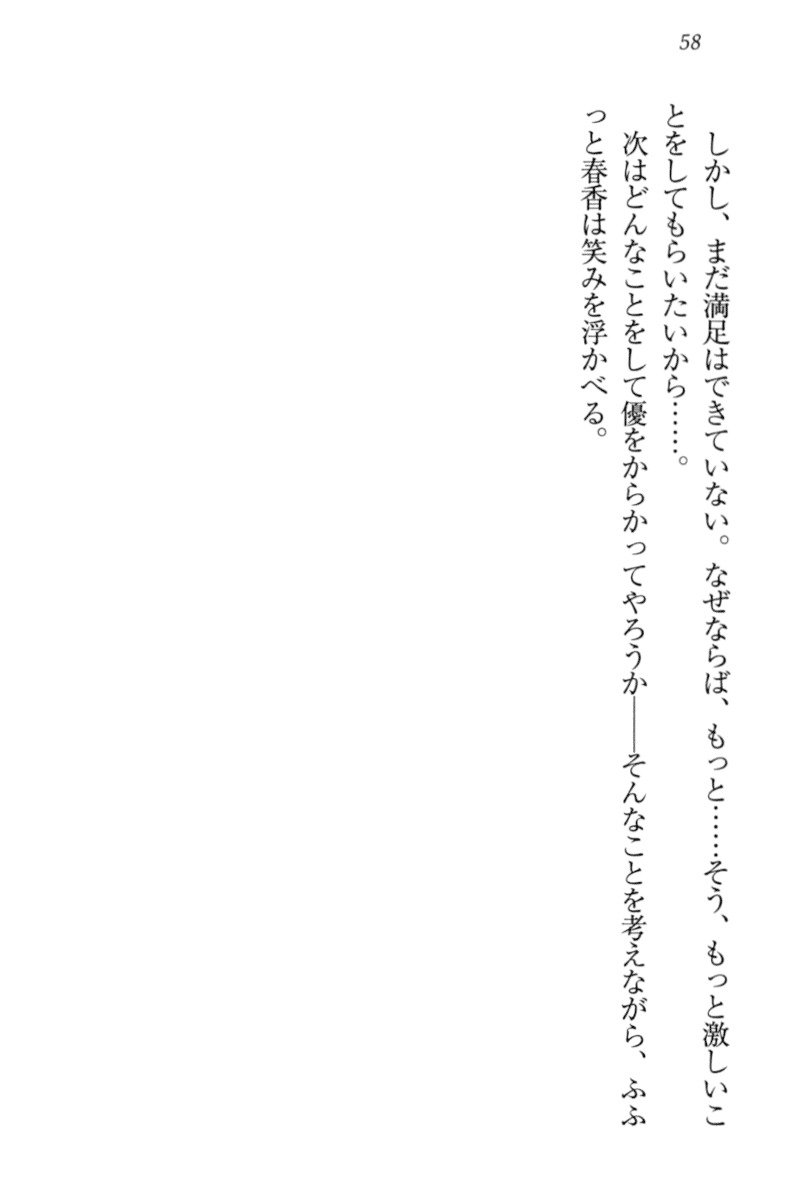 58
しかし、まだ満足はできていない。なぜならば、もっと……そう、もっと激しいこ
とをしてもらいたいから……。
次はどんなことをして優をからかってやろうか――そんなことを考えながら、ふふ
っと春香は笑みを浮かべる。